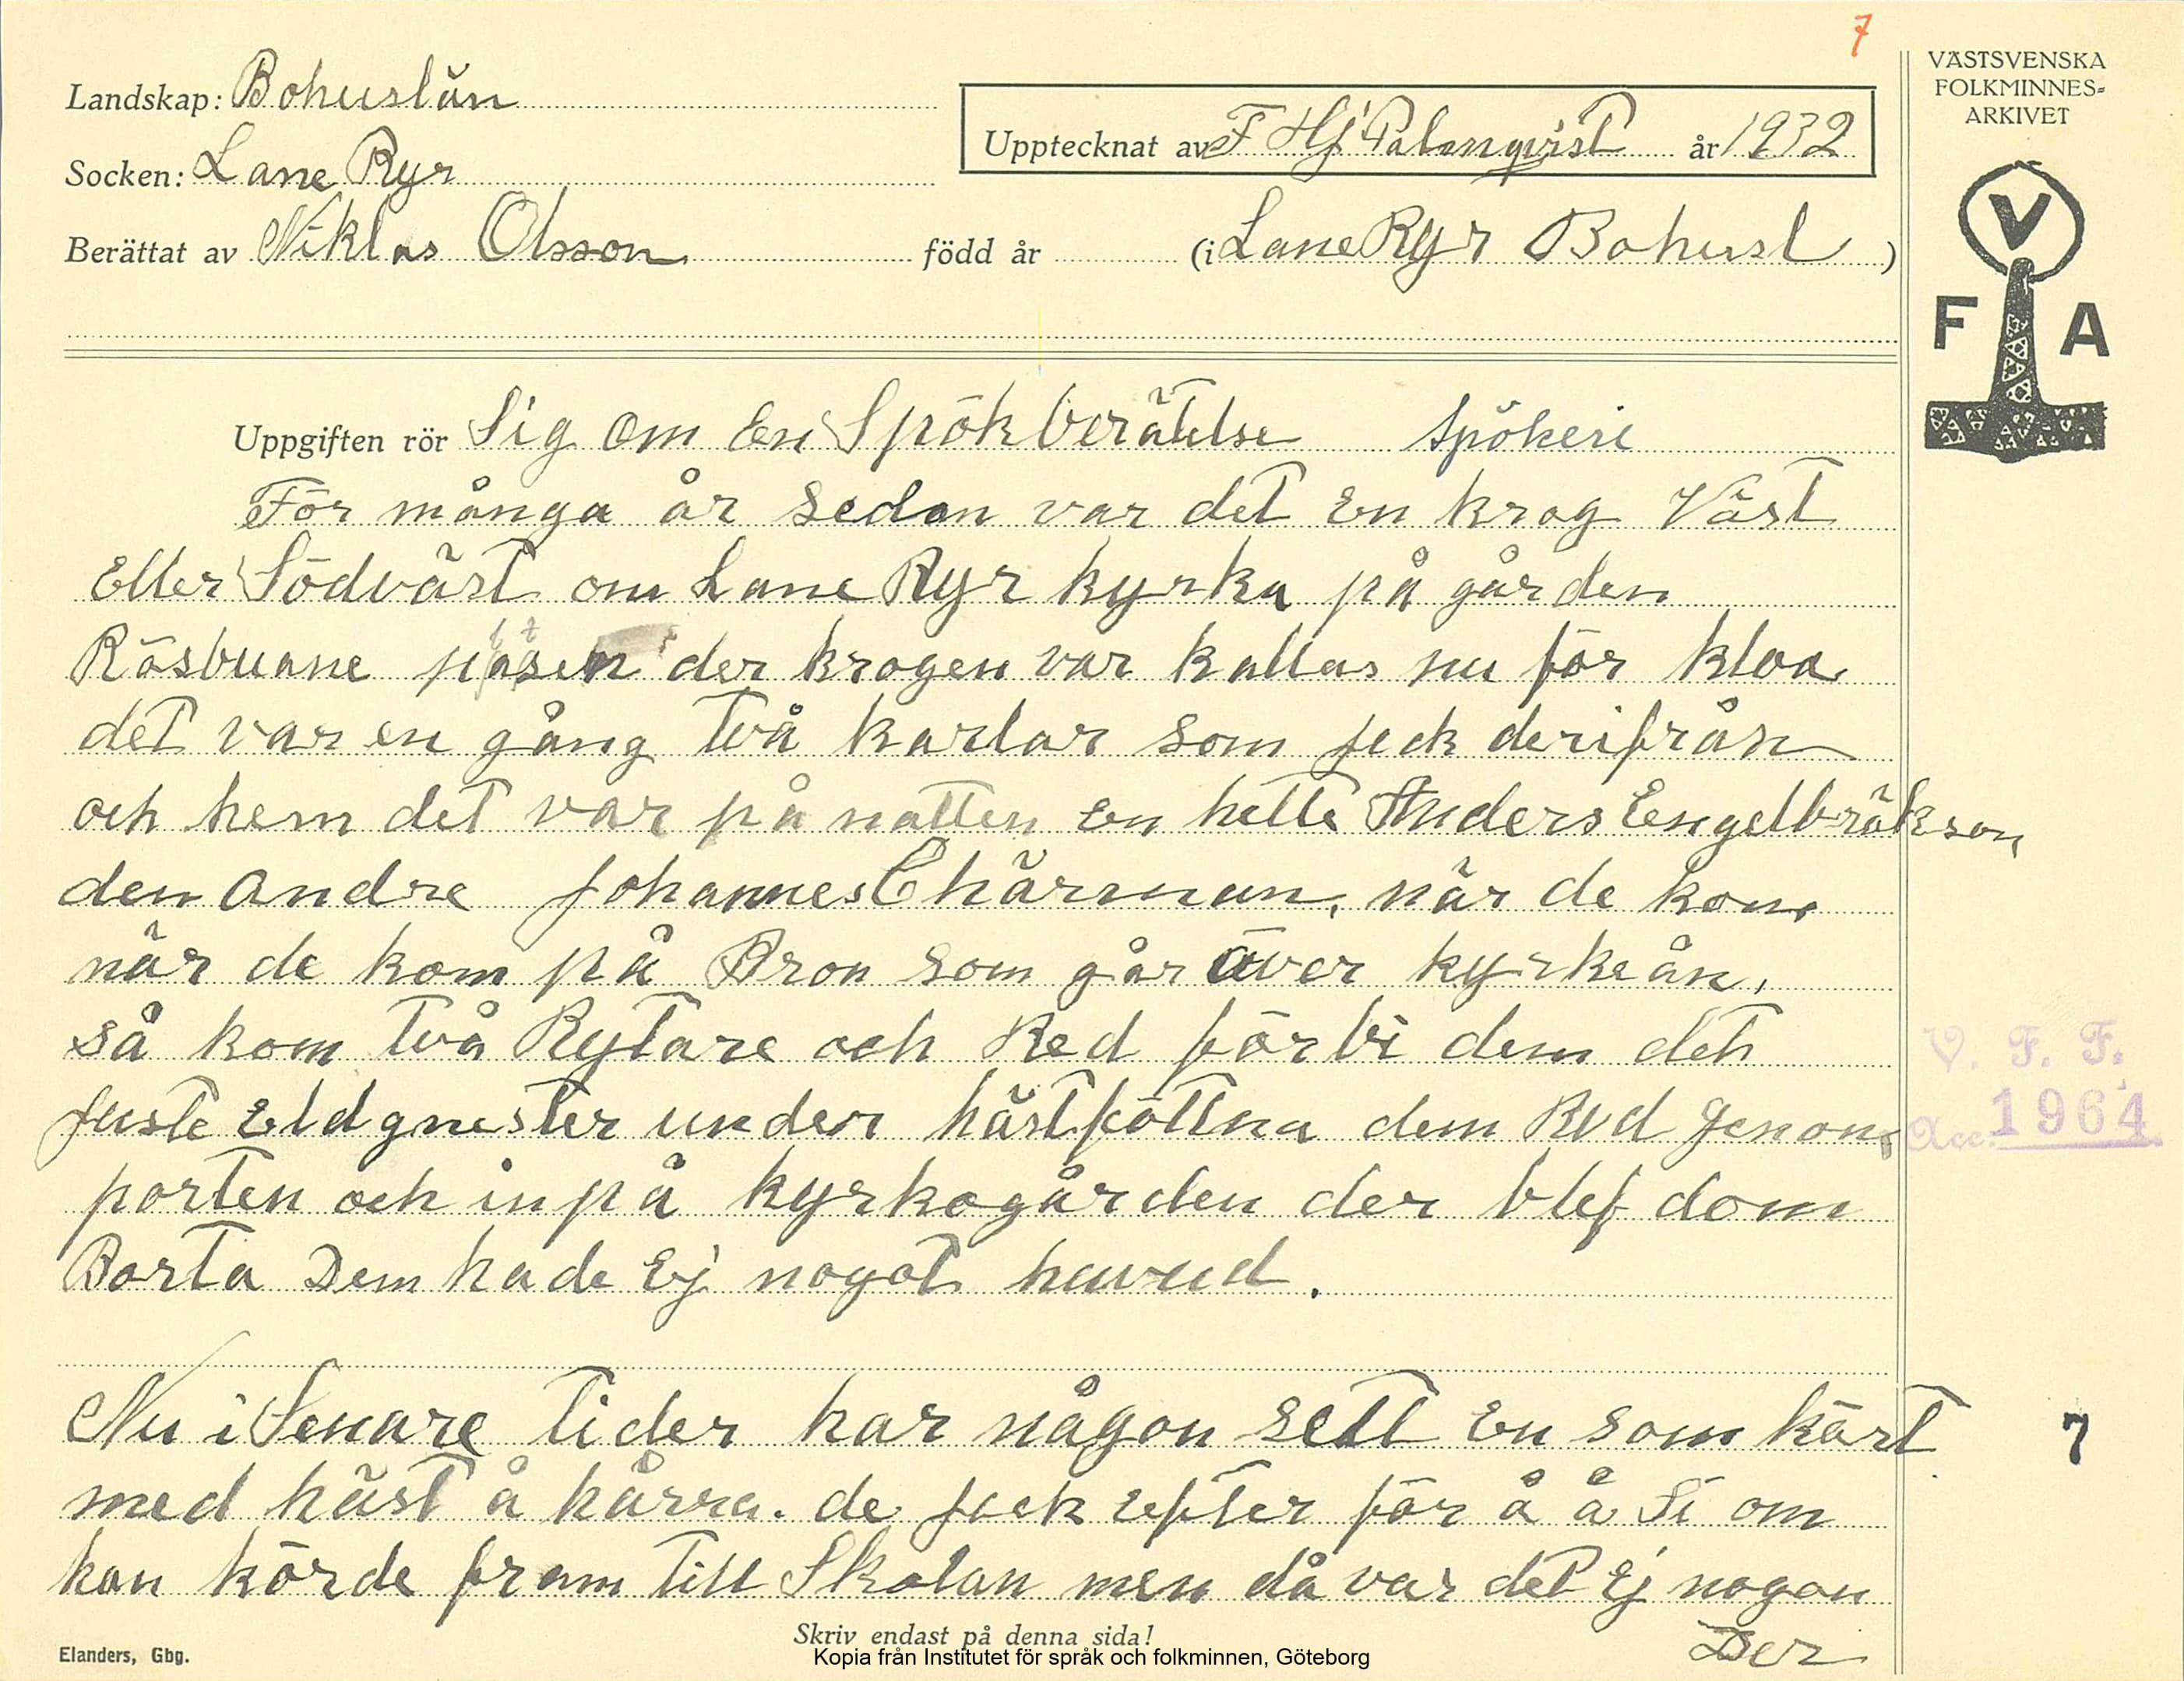 7
VÄSTSVENSKA
FOLKMINNES-
ARKIVET
Landskap: Bohuslän
Upptecknat av F Hj Palmqvist år 1932
Socken: Lane Ryr
Berättat av Niklas Olsson född år (i Lane Ryr Bohusl)
V
F A
Uppgiften rör Sig om En Spökberättelse Spökeri
För många år sedan var det En krog Väst
Eller Södväst om Lane Ryr kyrka på gården
Rösbuane der krogen var kallas nu för kloa
det var en gång två karlar som jeck derifrån
och hem det var på natten En hette Anders Engelbräkson
den andre Johannes Chärman, när de kom
när de kom på Bron som går över kyrkeån,
så kom två Rytare och Red förbi dem deh
juste Eldgnester under hästföttna dem Red Jenom
porten och inpå kyrkogården der blef dom
Borta Dem hade Ej nogot huvud.
V. F. F.
Acc. 1964
Nu i Senare tider har någon sett En som kört
med häst å kärra. de jeck efter för å å Si om
han körde fram till Skolan men då var det Ej nogon
Der
7
Skriv endast på denna sida!
Elanders, Gbg.
Kopia från Institutet för språk och folkminnen, Göteborg